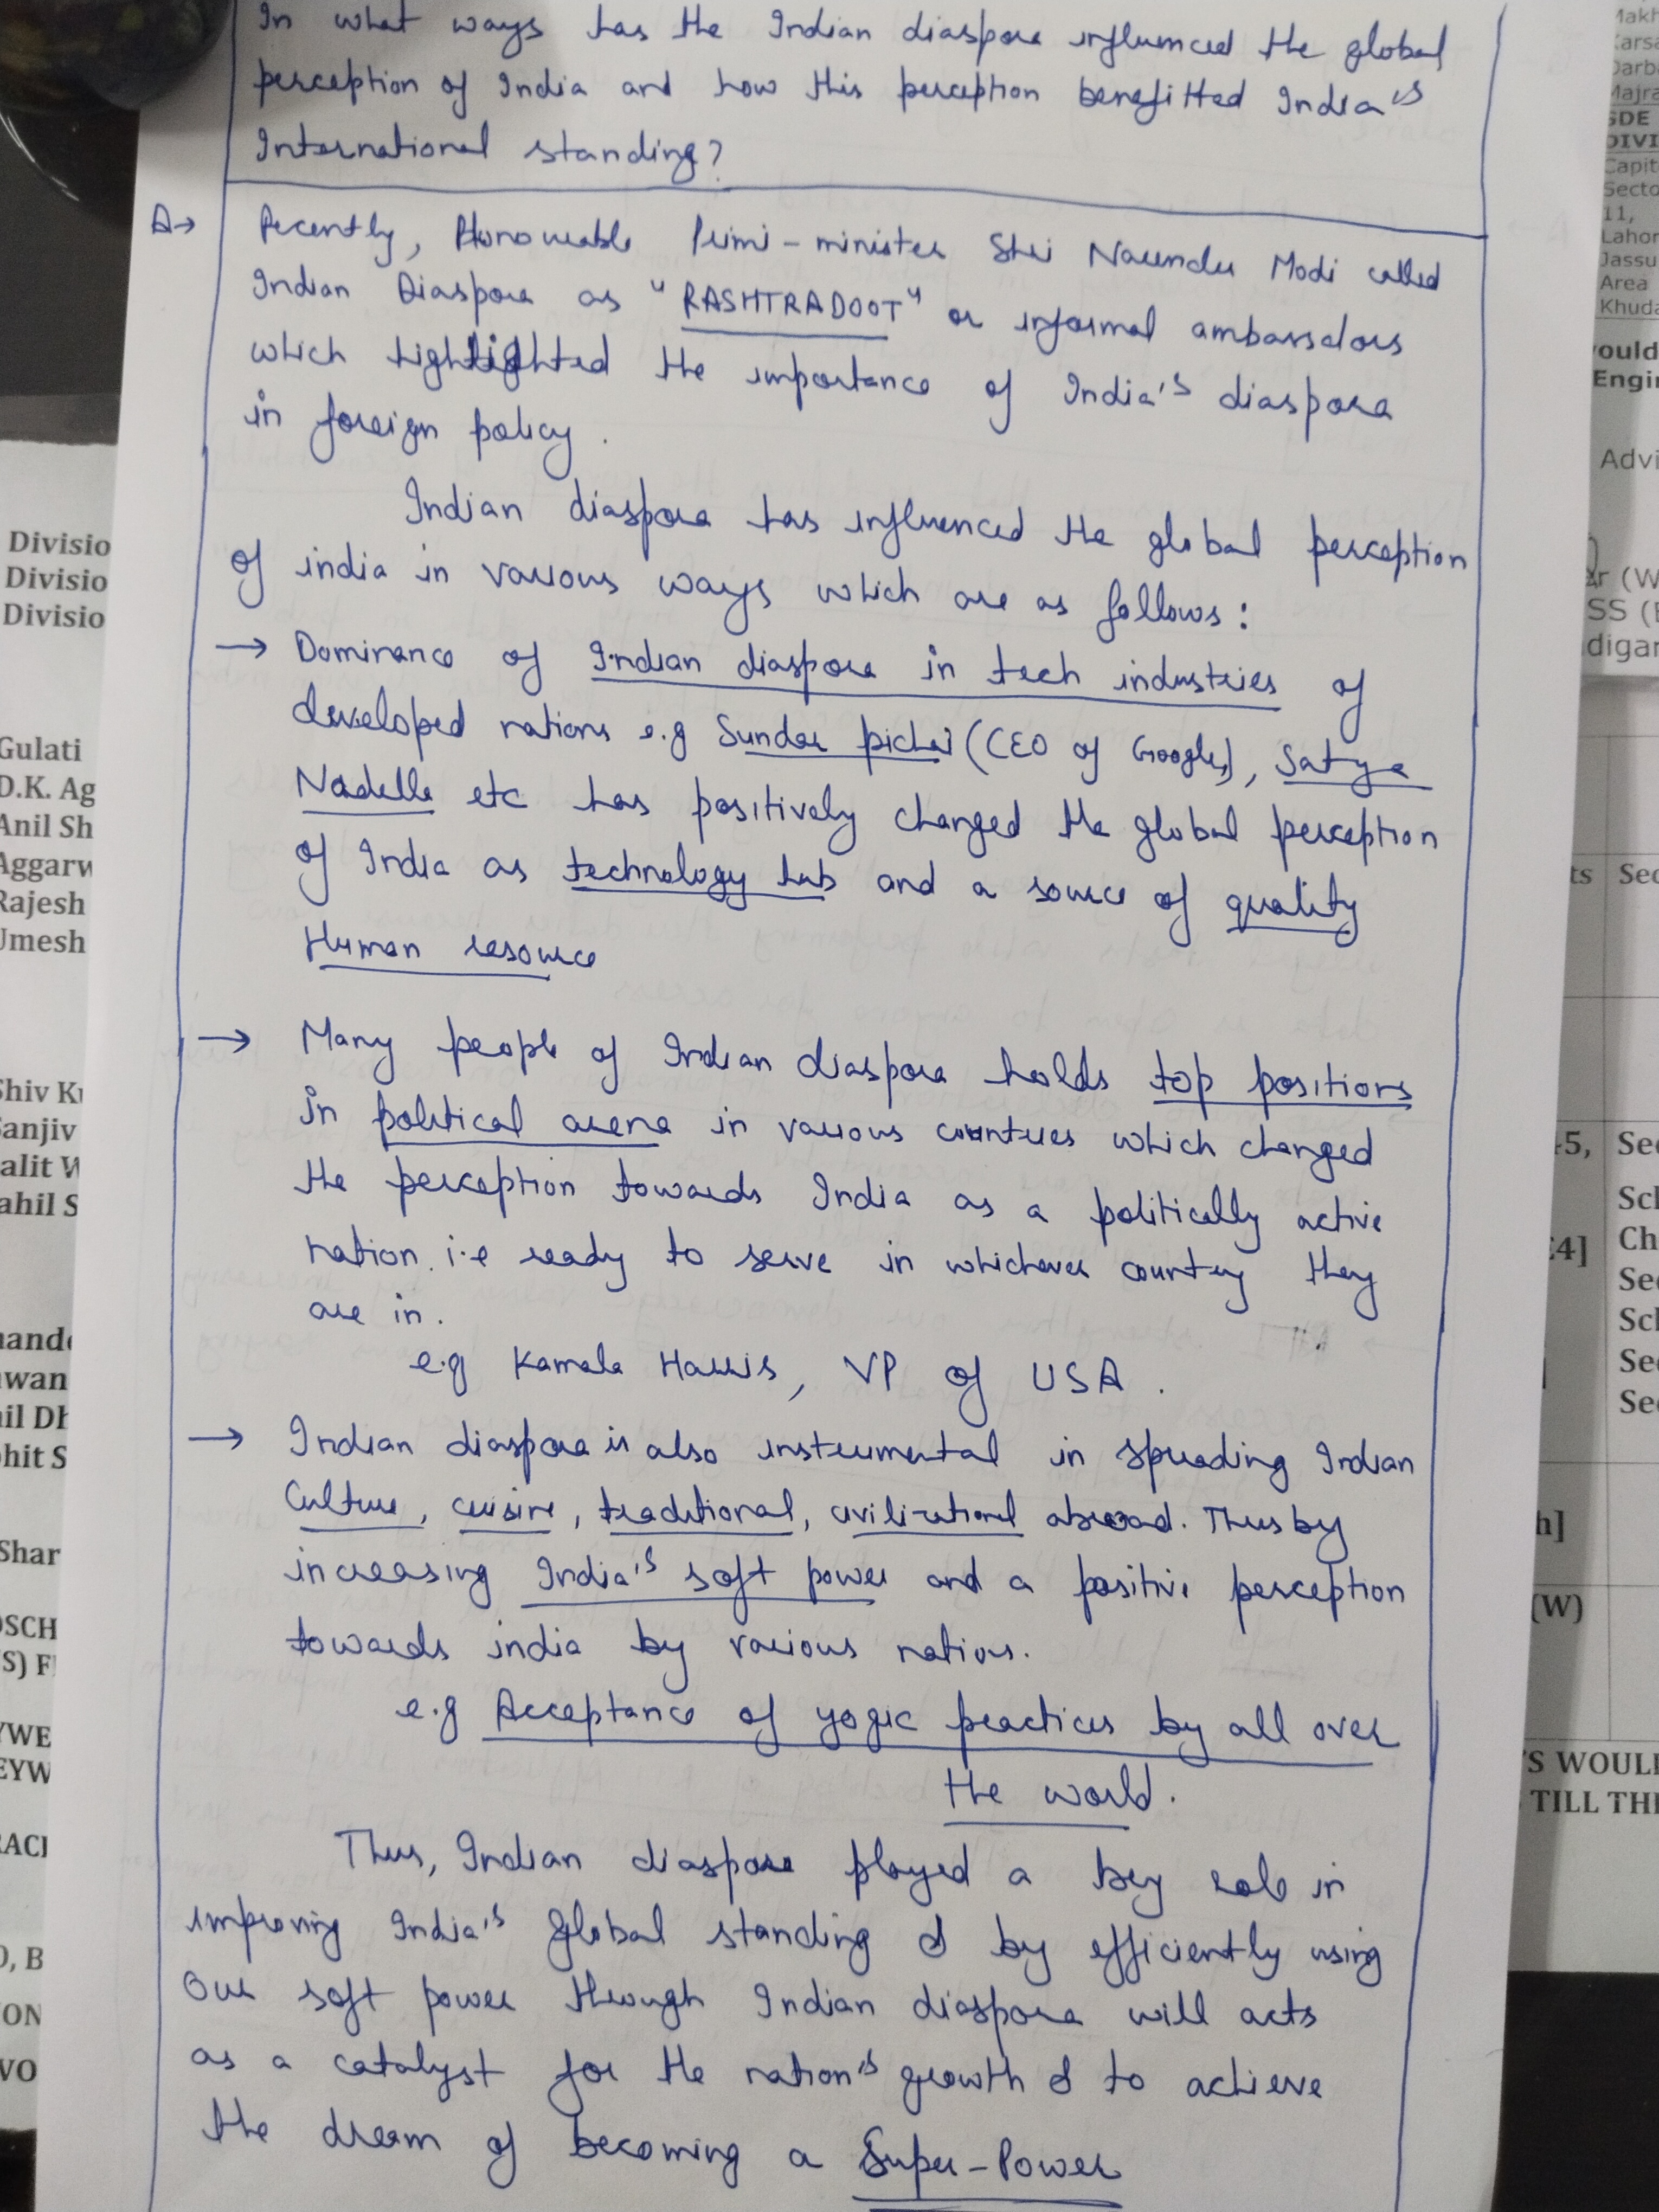 In what ways has the Indian diaspora influenced the global
perception of India and how this perception benefitted India's
International standing?
A→ Recently, Honourable Prime-minister Shri Narendra Modi called
Indian Diaspora as "RASHTRADOOT" or informal ambassadors
which highlighted the importance of India's diaspora
in foreign policy.
Indian diaspora has influenced the global perception
of india in various ways which are as follows:
→ Dominance of Indian diaspora in tech industries of
developed nations e.g Sundar pichai (CEO of Google), Satya
Nadella etc has positively changed the global perception
of India as technology hub and a source of quality
Human resource
→ Many people of Indian diaspora holds top positions
in political arena in various countries which changed
the perception towards India as a politically active
nation i.e ready to serve in whichever country they
are in.
e.g Kamala Harris, VP of USA.
→ Indian diaspora is also instrumental in spreading Indian
Culture, cuisine, traditional, civilizational abroad. Thus by
increasing India's soft power and a positive perception
towards india by various nations.
e.g Acceptance of yogic practices by all over
the world.
Thus, Indian diaspora played a key role in
improving India's Global standing & by efficiently using
Our soft power through Indian diaspora will acts
as a catalyst for the nation's growth & to achieve
the dream of becoming a Super-Power
Divisio
Divisio
Divisio
Gulati
D.K. Ag
Anil Sh
Aggarw
Rajesh
Umesh
Shiv Ku
Sanjiv
alit W
ahil S
nand
wan
il Dh
ohit S
Shar
OSCH
S) F
YWE
EYW
RACI
O, B
ION
VO
Makh
Karsa
Darb
Majra
SDE
DIVI
Capit
Secto
11,
Lahor
Jassu
Area
Khuda
ould
Engi
Advi
r (W
SS (E
digar
ts Sec
-5, Sec
Sch
E4] Ch
Sec
Sch
Sec
Sec
h]
(W)
'S WOUL
TILL THI